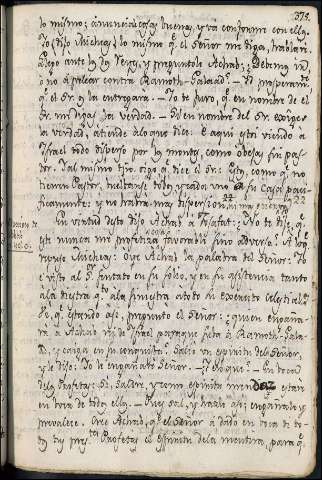 373.
lo mismo; anuncia cosas buenas, y va conforme con ellos.
Yo (dijo Micheas) lo mismo q. el Señor me diga, hablaré.
Llego ante los dos Reyes, y preguntole Achab: ¿Debemos ir
o no a pelear contra Ramoth-Galaad? — El
q. el Sr. os la entregara. — Yo te juro, q. en nombre de el
Sr. me digas la verdad. — Si en nombre del Sr. exiges
la verdad, atiende a lo que dice: E aqui estoi viendo à
Israel todo disperso por los montes, como obejas sin pas-
tor. Y al mismo tpo. oigo q. dice el Sr.: Estos, como q. no
tienen Pastor, vuelvanse todos, y cada uno a su Casa paci-
ficamente: y no habra mas dispersion,
22
En virtud desto dijo Achab à Josafat: ¿No te dije, q.
este nunca me profetiza cosa favorable sino adversa? A lo q.
repuso Micheas: Oye Achab la palabra del Señor: Yo
e visto al Sr. sentado en su solio, y en su asistencia tanto
a la diestra q.to a la siniestra a todo su exercito celestial
, q. estando asi, pregunto el Señor: ¿quien engaña-
rà a Achab rey de Israel para que suba à Ramoth-Gala-
ad, y caiga en su conquista? Salio un espiritu del Señor,
y le dijo: Yo le engañaré Señor. — ¿En que? — En boca
de los Profetas: Si, Saldré, y como espiritu mendaz estare
en boca de todos ellos. — Pues sal, y hazlo asi; engañaras y
prevalece. Oye Achab, q. el Señor à dado en boca de to-
dos tus pres.tes Profetas el espiritu de la mentira, para q.